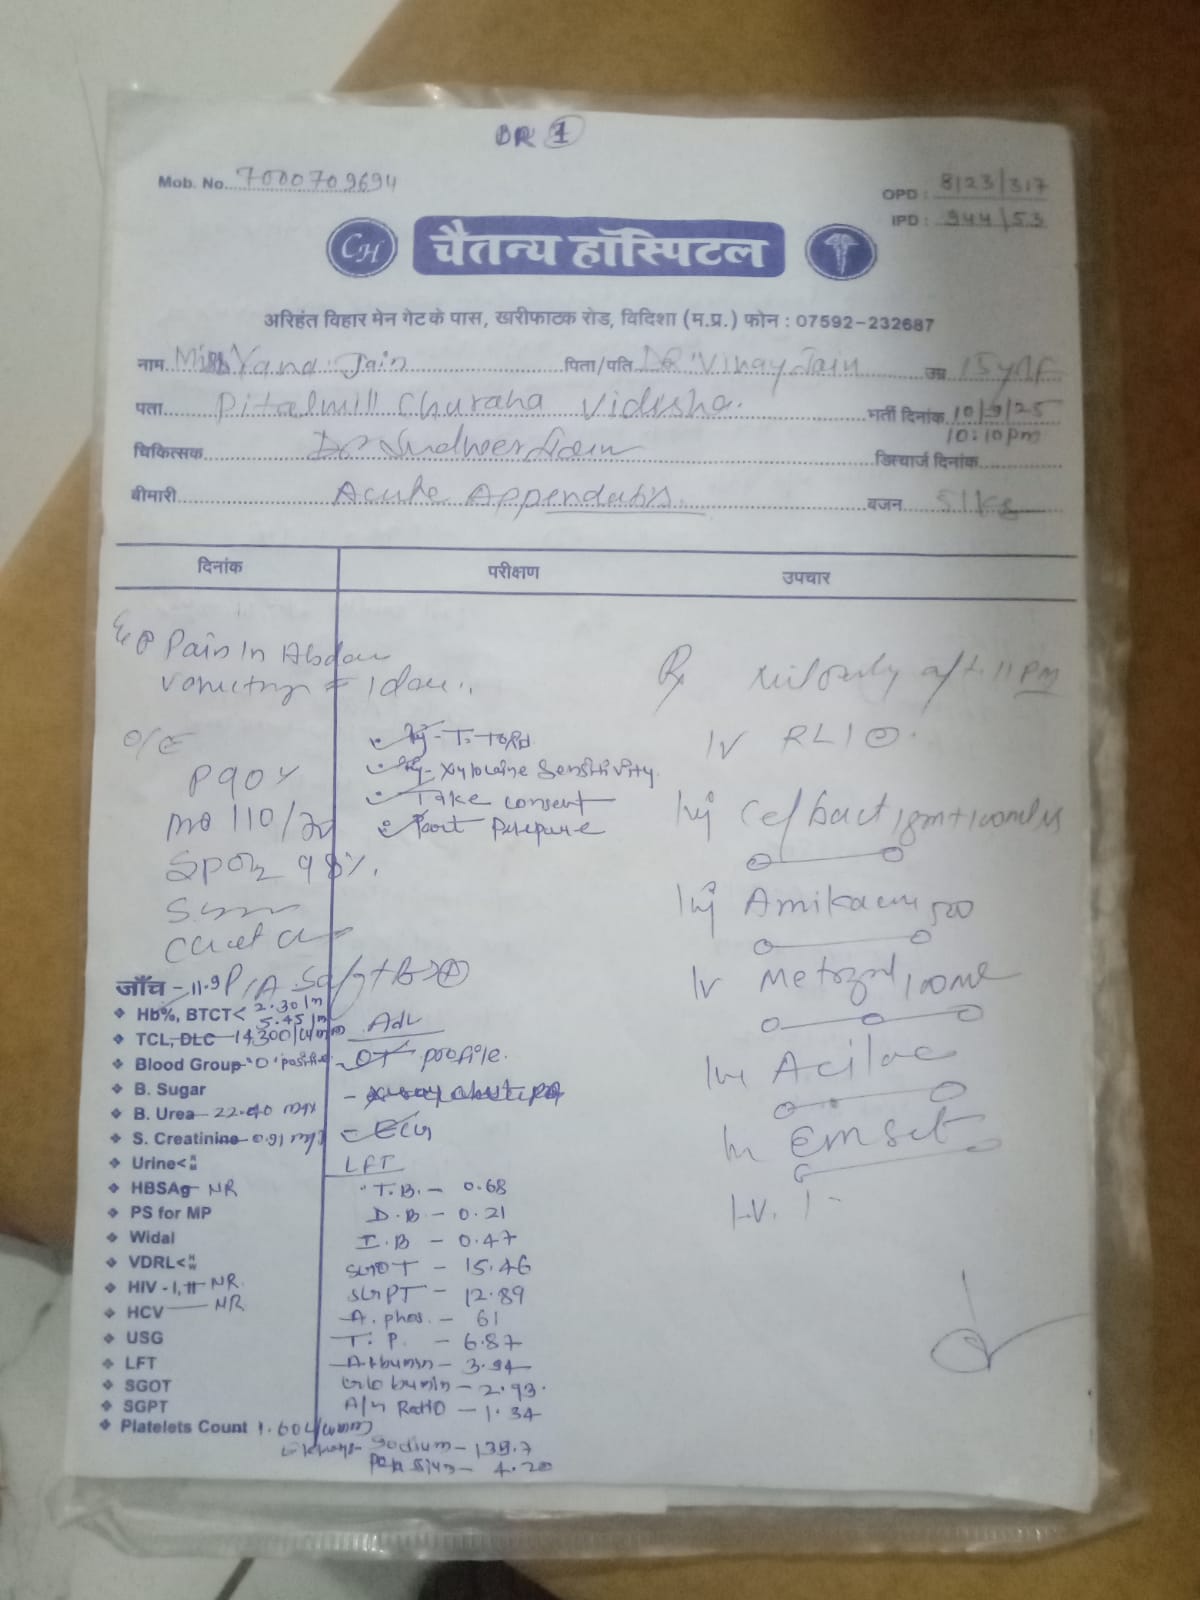 OR 1
Mob. No. 7000709694
OPD : 8123/317
IPD : 944/53
CH चैतन्य हॉस्पिटल
अरिहंत विहार मेन गेट के पास, खरीफाटक रोड, विदिशा (म.प्र.) फोन : 07592-232687
नाम Miss Yana Jain पिता/पति DR. Vinay Jain उम्र 15y/F
पता Pitalmill Churaha Vidisha. भर्ती दिनांक 10/9/25
10:10 pm
चिकित्सक Dr Sudheer Jain डिस्चार्ज दिनांक
बीमारी Acute Appendatis. वजन 51 kg
दिनांक परीक्षण उपचार
Pain In Abdom
Vomiting
O/E
P 90
110/70
SPO2 98%.
P/A
Rx 11 PM
IV RL
Inj Cefbact 1gm + 100ml
Inj Amikacin 500
IV Metrogyl 100ml
Aciloc
Emset
I.V.
Inj - T. Told
Inj - Xylocaine Sensitivity.
Take consent
Part Prepare
जाँच - 11.9
Hb%, BTCT< 2.30
5.45
TCL, DLC - 14,300/cumm
Blood Group - 'O' positive
B. Sugar
B. Urea - 22.40
S. Creatinine - 0.91
Urine<
HBSAg - NR
PS for MP
Widal
VDRL<
HIV - I, II - NR
HCV - NR
USG
LFT
SGOT
SGPT
Platelets Count 1.60 L/cumm
Adv
- OT profile.
- ECG
LFT
T.B. - 0.68
D.B - 0.21
I.B - 0.47
SGOT - 15.46
SGPT - 12.89
A. phos. - 61
T. P. - 6.87
Albumin - 3.94
Globumin - 2.93.
A/G Ratio - 1.34
Sodium - 139.7
Potasium - 4.20